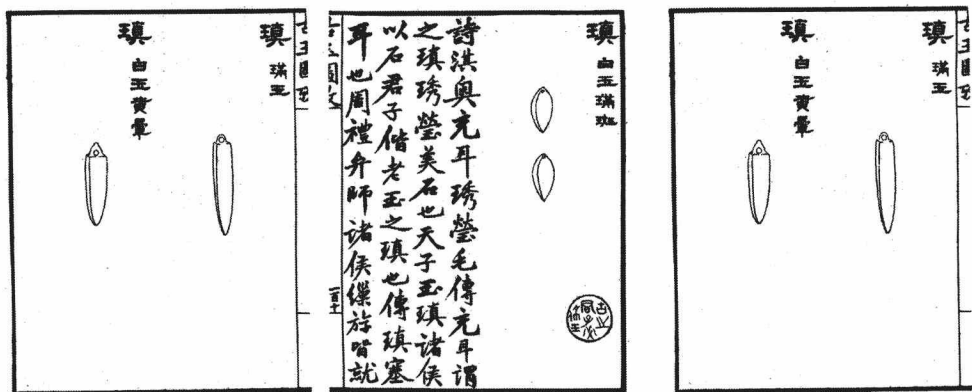 古玉圖攷
瑱 璊玉
瑱 白玉黃暈
瑱 白玉璊斑
詩淇奧充耳琇瑩毛傳充耳謂
之瑱琇瑩美石也天子玉瑱諸侯
以石君子偕老玉之瑱也傳瑱塞
耳也周禮弁師諸侯繅斿皆就
古玉圖攷
一百十
古玉圖攷
瑱 璊玉
瑱 白玉黃暈